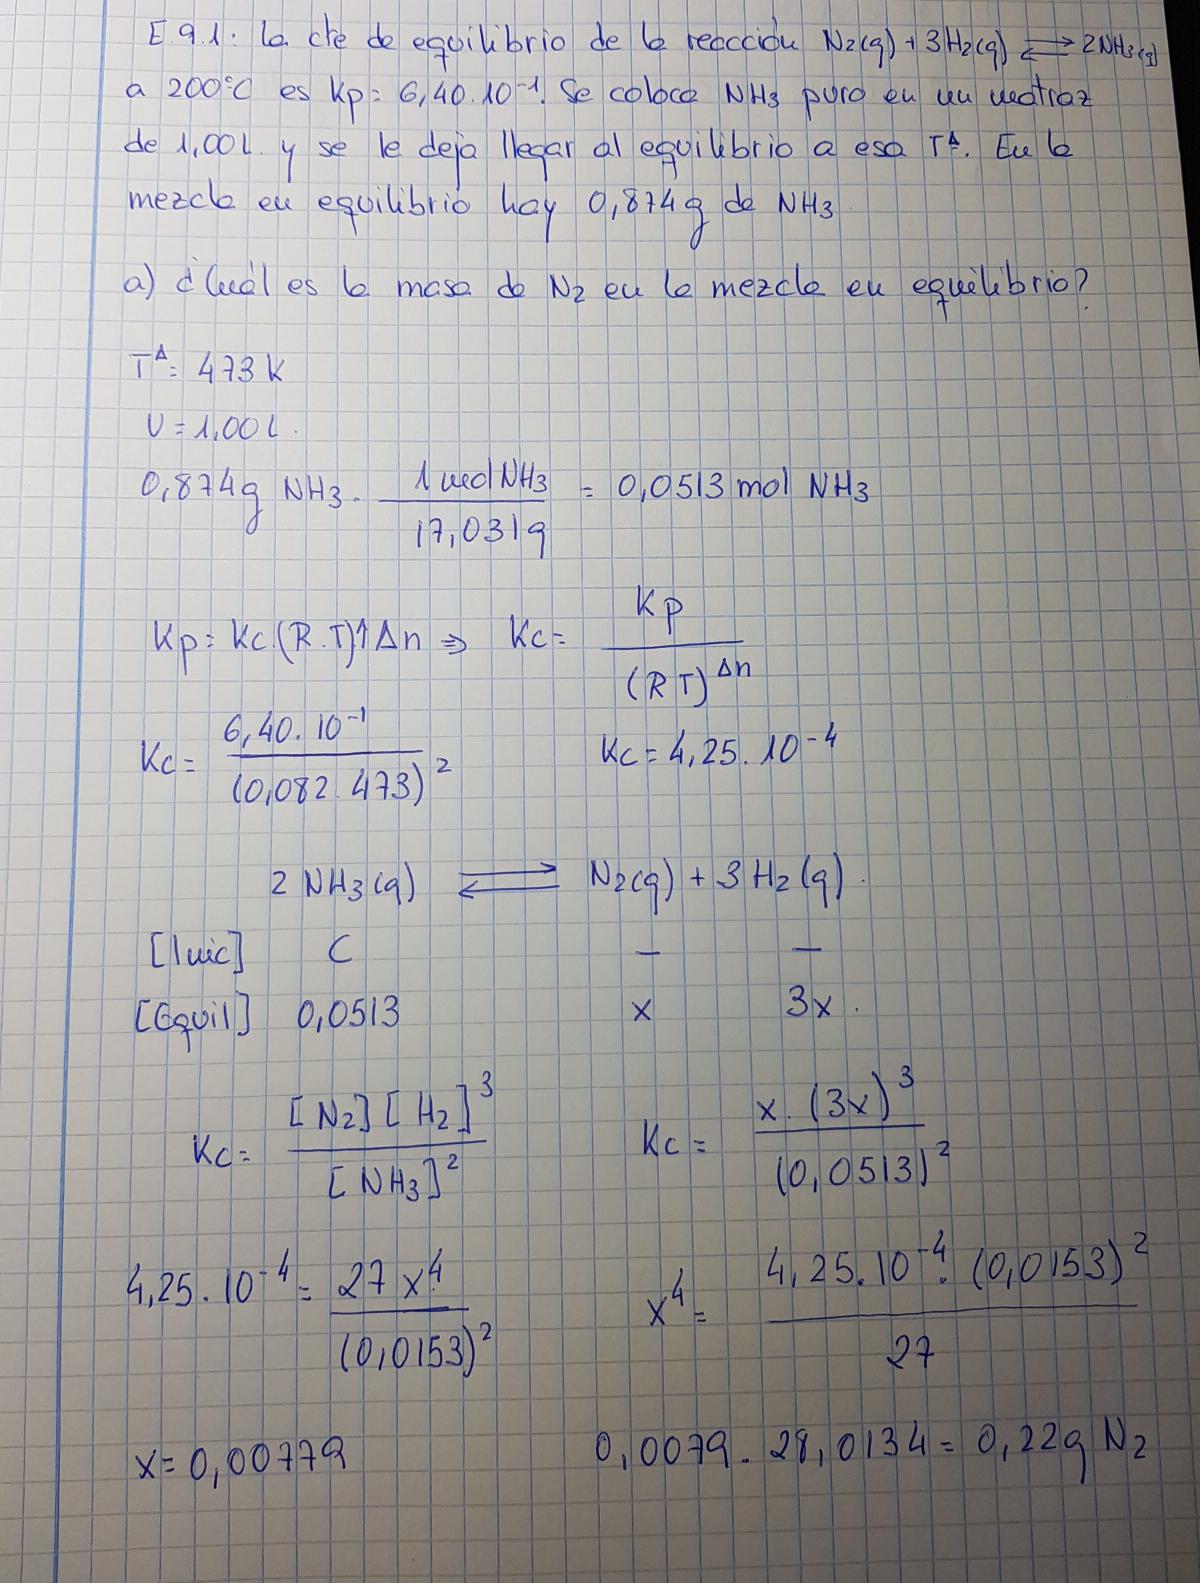 E.9.1: La cte de equilibrio de la reacción N2(g) + 3H2(g) ⇌ 2NH3(g)
a 200°C es Kp = 6,40.10⁻¹. Se coloca NH3 puro en un matraz
de 1,00L y se le deja llegar al equilibrio a esa Tᵃ. En la
mezcla en equilibrio hay 0,874g de NH3.
a) ¿Cuál es la masa de N2 en la mezcla en equilibrio?
Tᵃ = 473 K
V = 1,00 L.
0,874g NH3 . 1 mol NH3 / 17,031g = 0,0513 mol NH3
Kp = Kc.(R.T)↑Δn ⇒ Kc = Kp / (RT)^Δn
Kc = 6,40.10⁻¹ / (0,082.473)² Kc = 4,25.10⁻⁴
2 NH3(g) ⇌ N2(g) + 3H2(g).
[Inic] C — —
[Equil] 0,0513 x 3x.
Kc = [N2][H2]³ / [NH3]² Kc = x.(3x)³ / (0,0513)²
4,25.10⁻⁴ = 27x⁴ / (0,0153)² x⁴ = 4,25.10⁻⁴.(0,0153)² / 27
x = 0,00779 0,0079 . 28,0134 = 0,22g N2